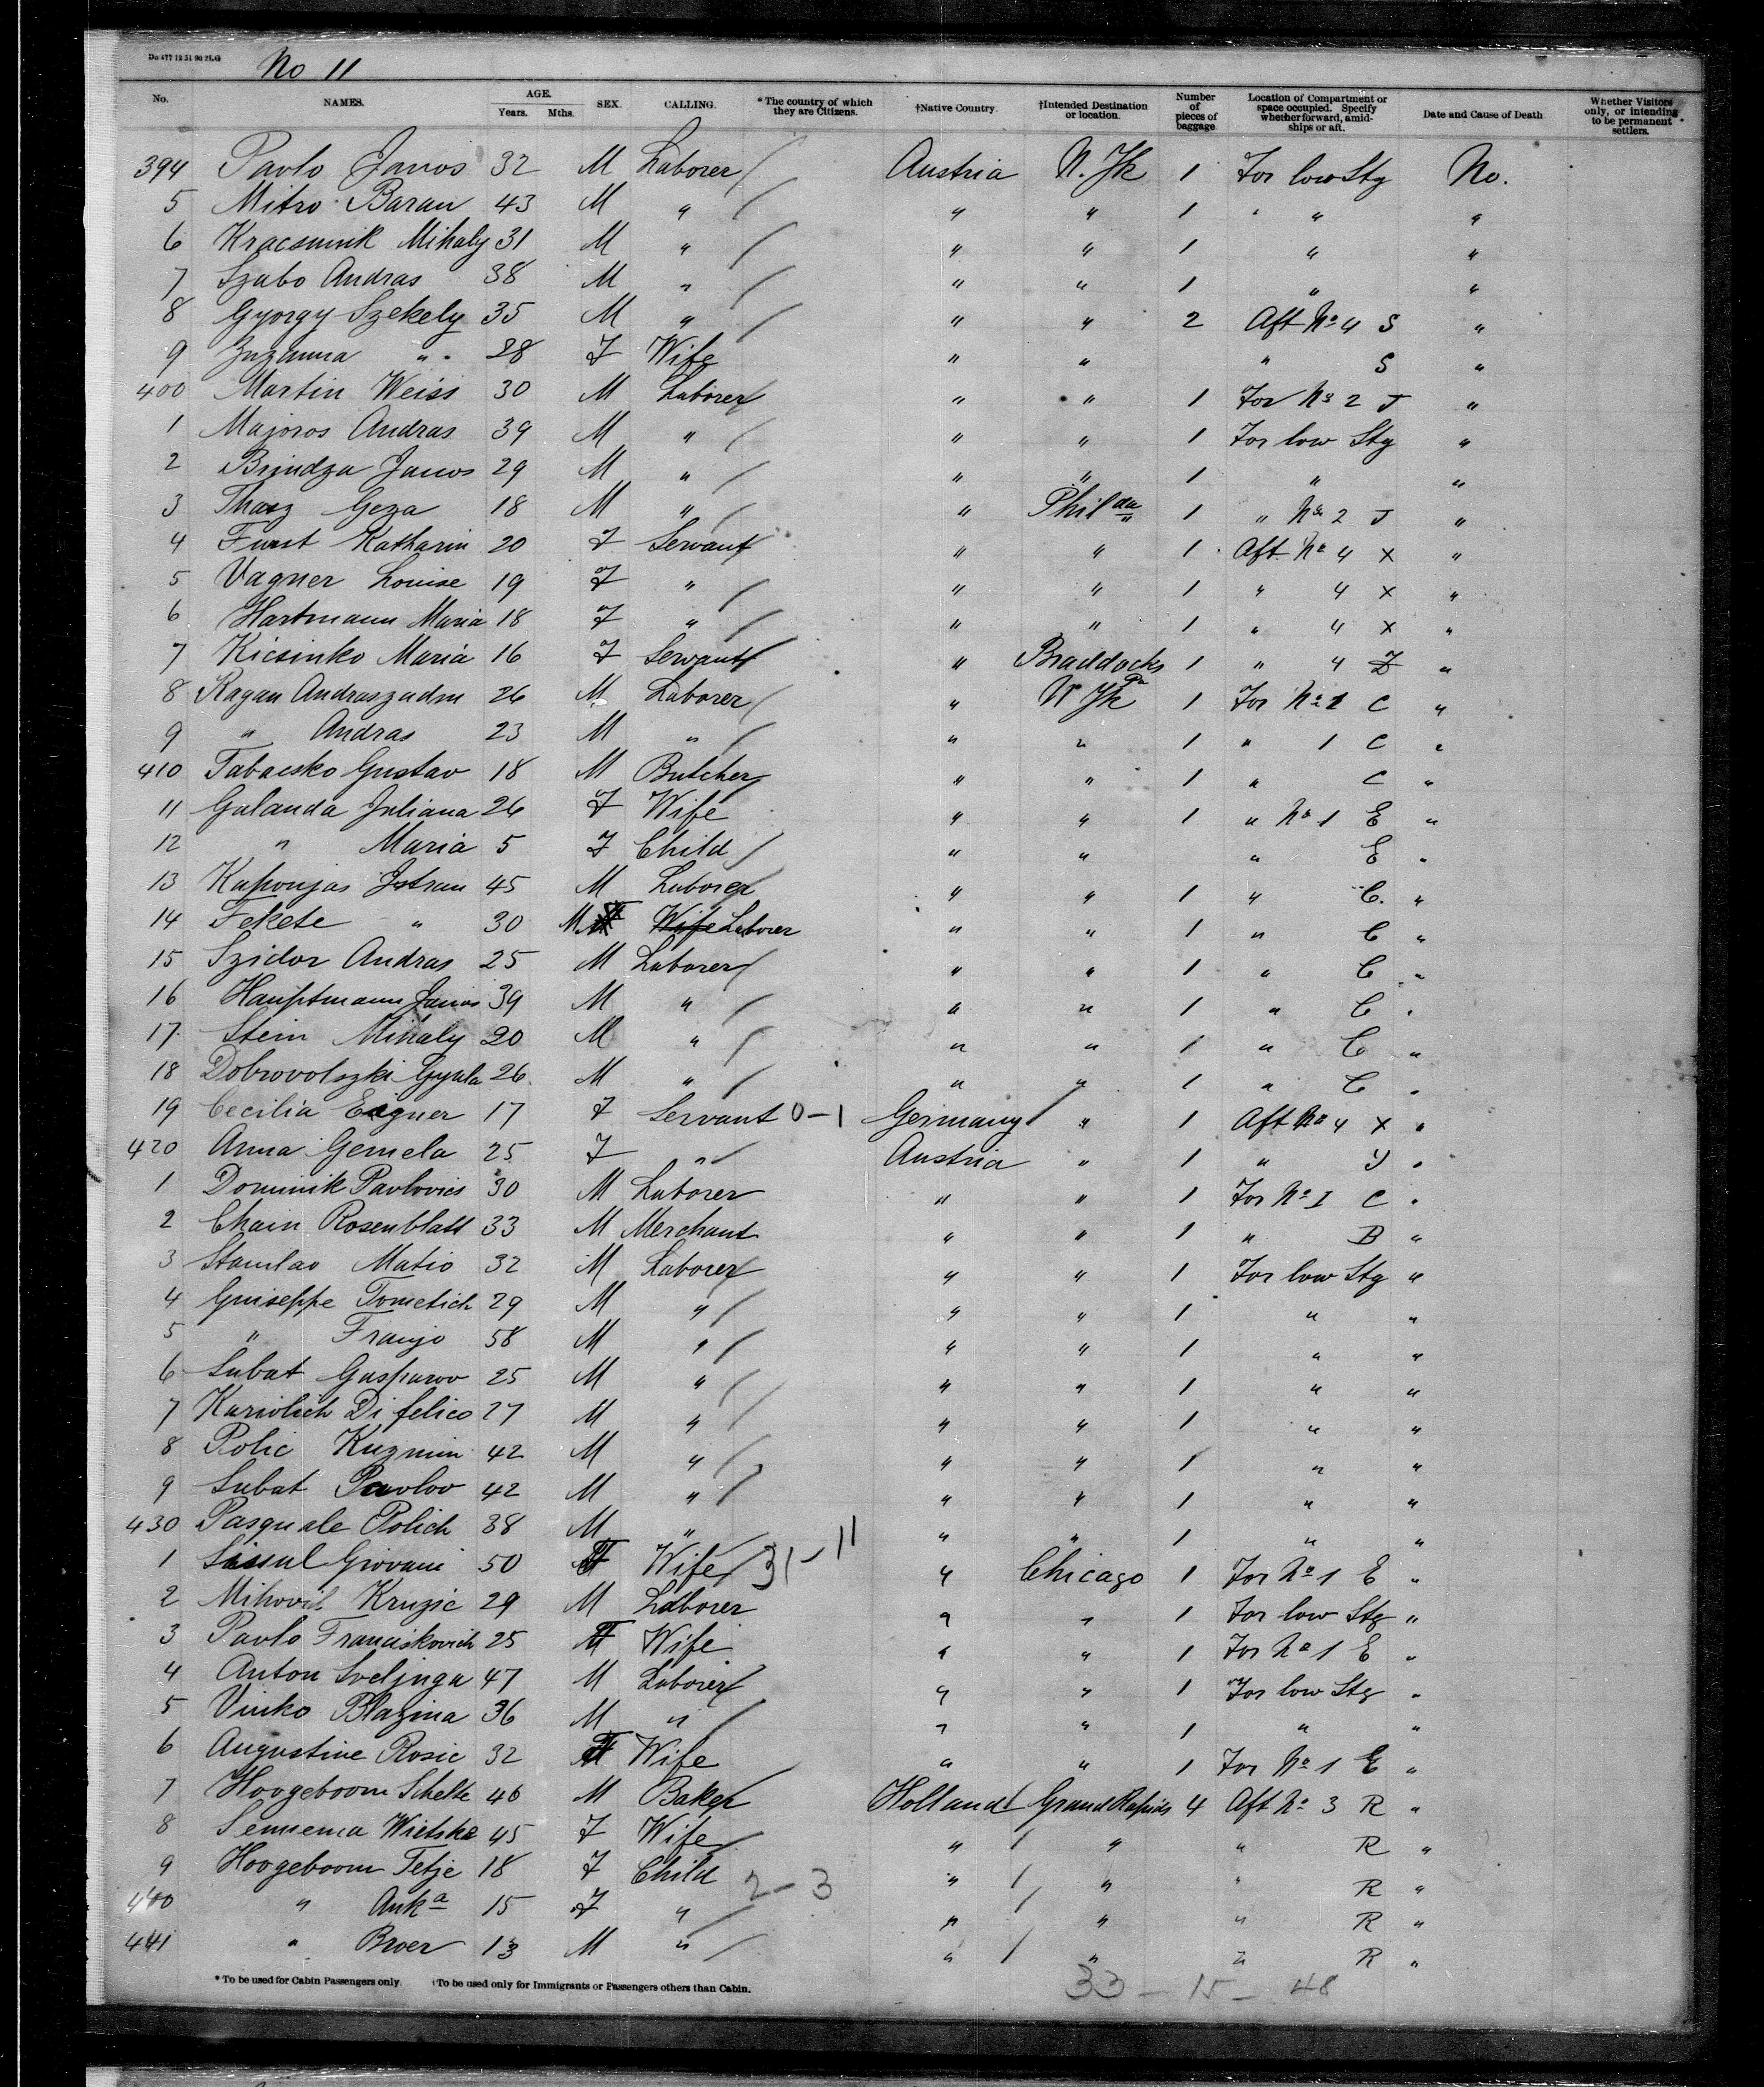 Do 477 12 51 90 2LG
No 11
No. NAMES. AGE. Years. Mths. SEX. CALLING. * The country of which they are Citizens. †Native Country. †Intended Destination or location. Number of pieces of baggage. Location of Compartment or space occupied. Specify whether forward, amidships or aft. Date and Cause of Death Whether Visitors only, or intending to be permanent settlers.
394 Pavlo Janos 32 M Laborer Austria N. Yk 1 For low Stg No.
5 Mitro Baran 43 M " " " 1 " " "
6 Kracsunik Mihaly 31 M " " " 1 " "
7 Szabo Andras 38 M " " " 1 " "
8 Gyorgy Szekely 35 M " " " 2 Aft No 4 S "
9 Zuzanna " 28 F Wife " " " S "
400 Martin Weiss 30 M Laborer " " 1 For No 2 J "
1 Majoros Andras 39 M " " " 1 For low Stg "
2 Brindza Janos 29 M " " " 1 " "
3 Thasz Geza 18 M " " Philda 1 " No 2 J "
4 Furst Katharin 20 F Servant " " 1 Aft No 4 X "
5 Vagner Louise 19 F " " " 1 " 4 X "
6 Hartmann Maria 18 F " " " 1 " 4 X "
7 Kicsinko Maria 16 F Servant " Braddocks Pa 1 " 4 Z "
8 Ragan Andraszadm 26 M Laborer " N Yk 1 For No 1 C "
9 " Andras 23 M " " " 1 " 1 C "
410 Tabacsko Gustav 18 M Butcher " " 1 " C "
11 Galanda Juliana 26 F Wife " " 1 " No 1 E "
12 " Maria 5 F Child " " " E "
13 Kaponjas Istran 45 M Laborer " " 1 " C. "
14 Fekete " 30 M Wife Laborer " " 1 " C "
15 Szidor Andras 25 M Laborer " " 1 " C "
16 Hauptmann Janos 39 M " " " 1 " C "
17 Stein Mihaly 20 M " " " 1 " C "
18 Dobrovolszki Gyula 26 M " " " 1 " C "
19 Cecilia Eigner 17 F Servant 0-1 Germany " 1 Aft No 4 X "
420 Anna Gemela 25 F " Austria " 1 " Y "
1 Dominik Pavlovics 30 M Laborer " " 1 For No I C "
2 Chain Rosenblatt 33 M Merchant " " 1 " B "
3 Stanilao Matio 32 M Laborer " " 1 For low Stg "
4 Guiseppe Tometich 29 M " " " 1 " "
5 " Franjo 58 M " " " 1 " "
6 Lubat Gasparov 25 M " " " 1 " "
7 Kariolich Di felico 27 M " " " 1 " "
8 Polic Kuzmin 42 M " " " 1 " "
9 Lubat Pavlov 42 M " " " 1 " "
430 Pasquale Polich 38 M " " " 1 " "
1 Giovani 50 F Wife 31-11 " Chicago 1 For No 1 E "
2 Mihovil Kruzic 29 M Laborer " " 1 For low Stg "
3 Pavlo Franciskovich 25 F Wife " " 1 For No 1 E "
4 Anton Sveljuga 47 M Laborer " " 1 For low Stg "
5 Vinko Blazina 36 M " " " 1 " "
6 Augustine Rosic 32 F Wife " " 1 For No 1 E "
7 Hoogeboom Schelte 46 M Baker Holland Grand Rapids 4 Aft No 3 R "
8 Sennema Wietske 45 F Wife " " " R "
9 Hoogeboom Tetje 18 F Child 2-3 " " " R "
440 " Anka 15 F " " " " R "
441 " Broer 13 M " " " " R "
* To be used for Cabin Passengers only. †To be used only for Immigrants or Passengers others than Cabin.
33 - 15 - 48